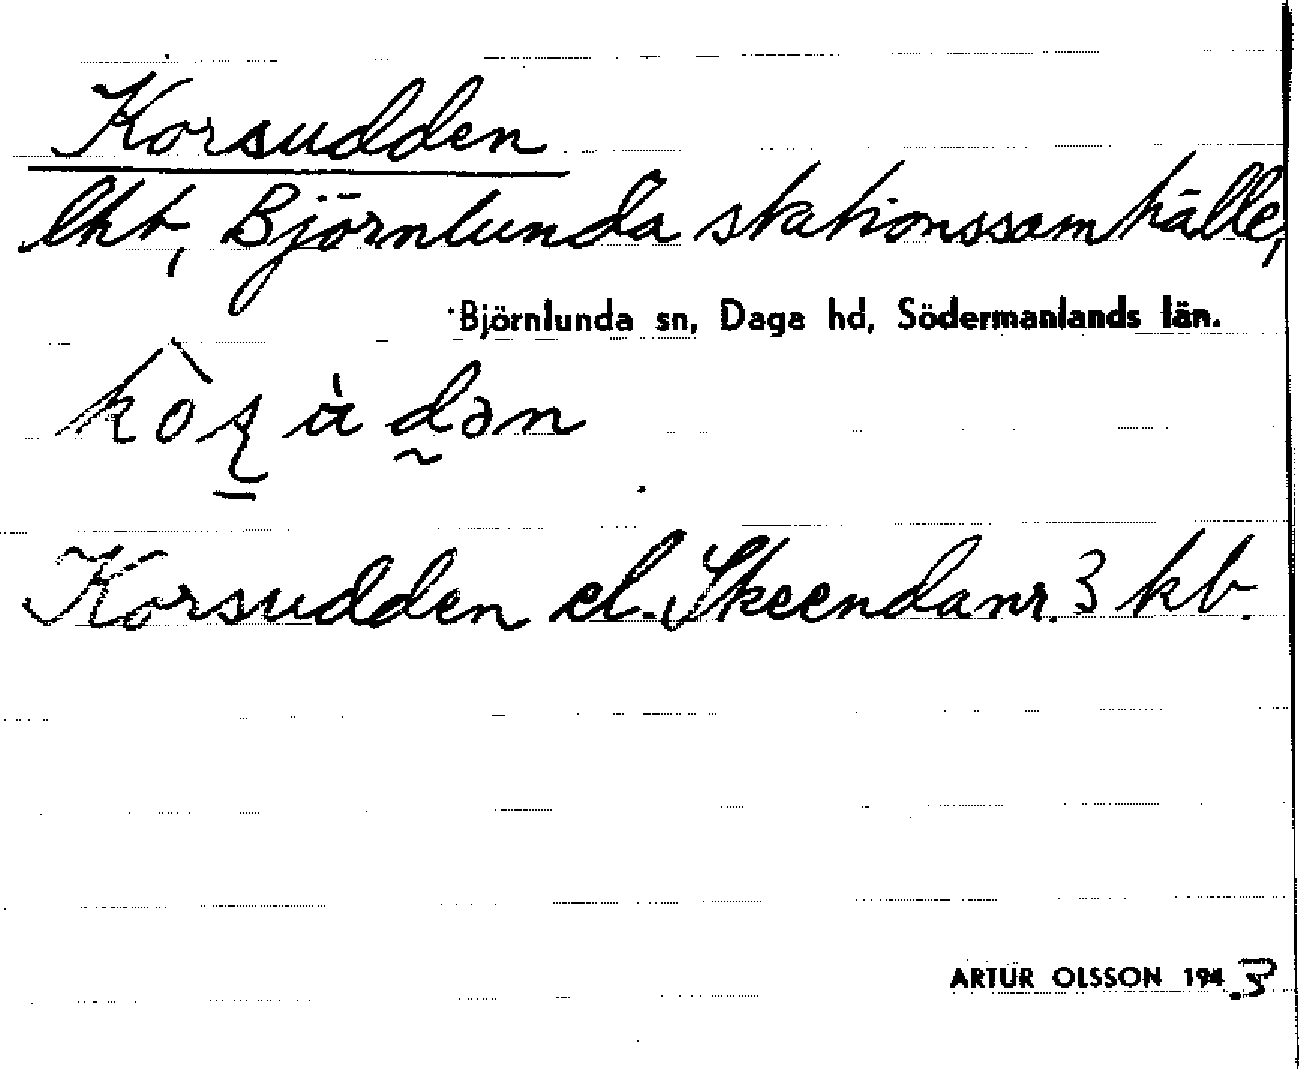 Korsudden
lht, Björnlunda stationssamhälle,
Björnlunda sn, Daga hd, Södermanlands län.
Korsudden el. Skeenda nr. 3 kb.
ARTUR OLSSON 1943